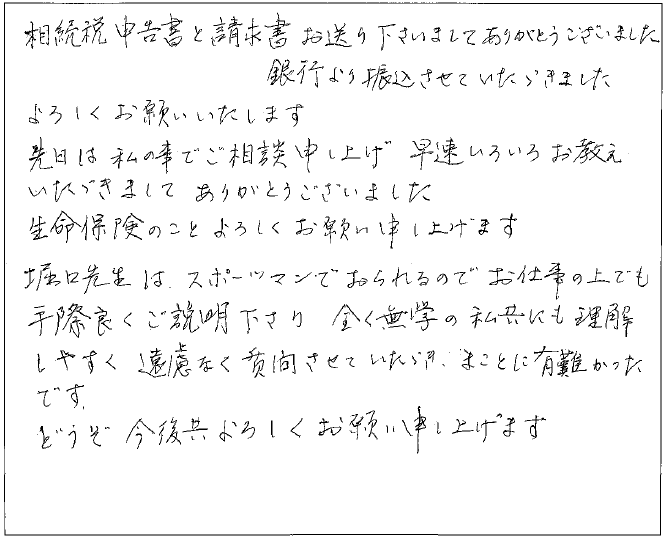 相続税申告書と請求書お送り下さいましてありがとうございました
銀行より振込させていたゞきました
よろしくお願いいたします
先日は私の事でご相談申し上げ 早速いろいろお教え
いたゞきまして ありがとうございました
生命保険のことよろしくお願い申し上げます
堀口先生は、スポーツマンでおられるのでお仕事の上でも
手際良くご説明下さり 全く無学の私共にも理解
しやすく 遠慮なく質問させていたゞき、まことに有難かった
です。
どうぞ今後共よろしくお願い申し上げます